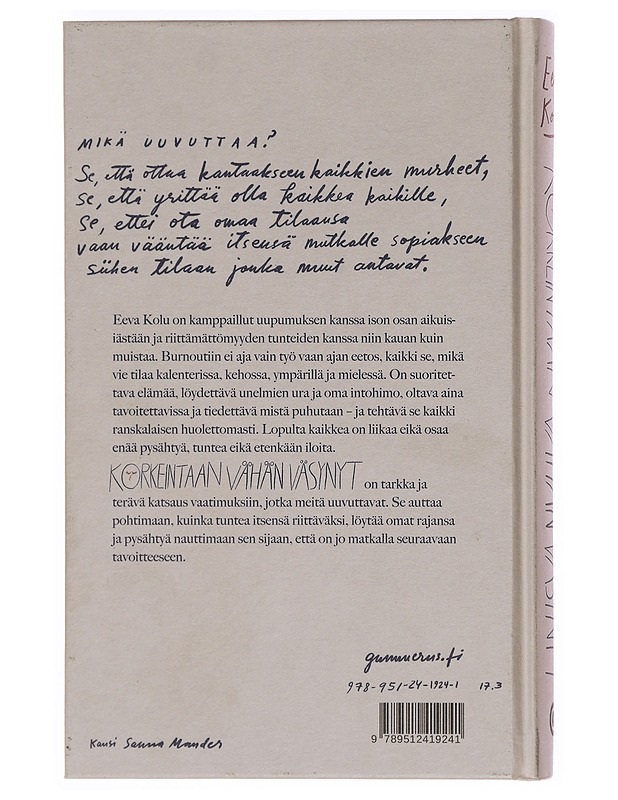 MIKÄ UUVUTTAA?
Se, että ottaa kantaakseen kaikkien murheet,
Se, että yrittää olla kaikkea kaikille,
Se, ettei ota omaa tilaansa
vaan vääntää itsensä mutkalle sopiakseen
siihen tilaan jonka muut antavat.
Eeva Kolu on kamppaillut uupumuksen kanssa ison osan aikuis-
iästään ja riittämättömyyden tunteiden kanssa niin kauan kuin
muistaa. Burnoutiin ei aja vain työ vaan ajan eetos, kaikki se, mikä
vie tilaa kalenterissa, kehossa, ympärillä ja mielessä. On suoritet-
tava elämää, löydettävä unelmien ura ja oma intohimo, oltava aina
tavoitettavissa ja tiedettävä mistä puhutaan – ja tehtävä se kaikki
ranskalaisen huolettomasti. Lopulta kaikkea on liikaa eikä osaa
enää pysähtyä, tuntea eikä etenkään iloita.
KORKEINTAAN VÄHÄN VÄSYNYT on tarkka ja
terävä katsaus vaatimuksiin, jotka meitä uuvuttavat. Se auttaa
pohtimaan, kuinka tuntea itsensä riittäväksi, löytää omat rajansa
ja pysähtyä nauttimaan sen sijaan, että on jo matkalla seuraavaan
tavoitteeseen.
gummerus.fi
978-951-24-1924-1 17.3
9 789512 419241
Kansi Sanna Mander
KORKEINTAAN VÄHÄN VÄSYNYT